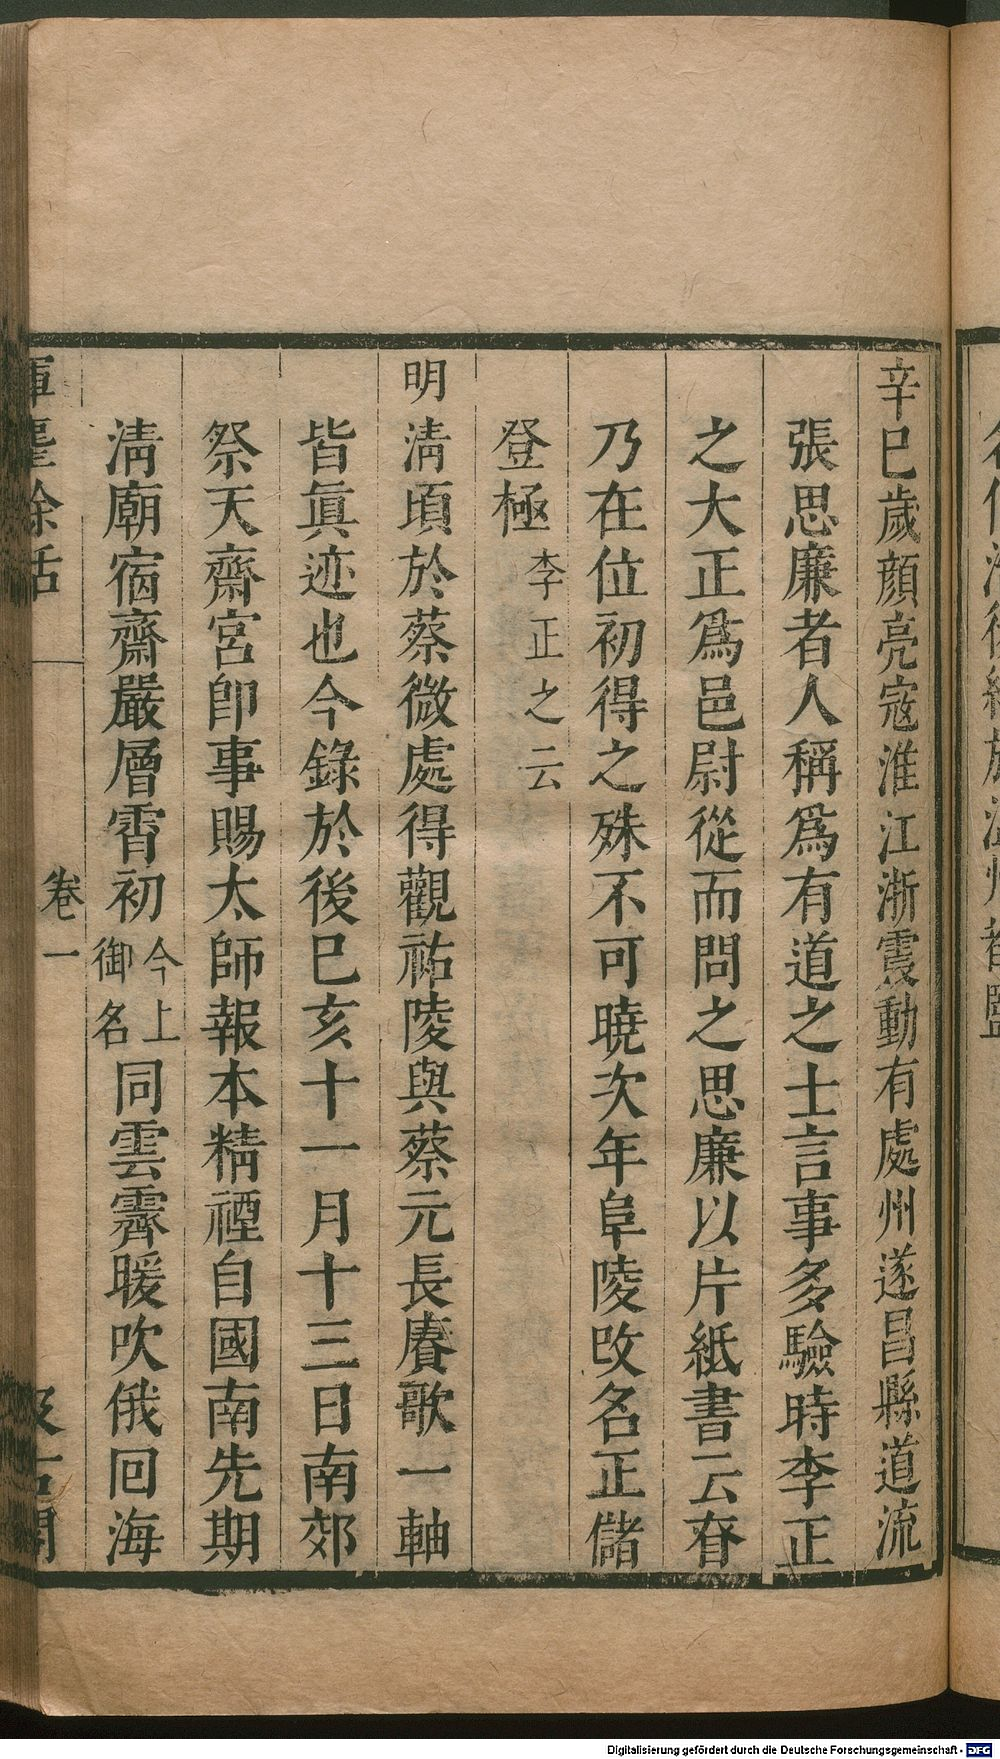 辛巳歲顔亮寇淮江浙震動有處州遂昌縣道流
張思廉者人稱爲有道之士言事多驗時李正
之大正爲邑尉從而問之思廉以片紙書云昚
乃在位初得之殊不可曉次年阜陵改名正儲
登極李正之云
明清頃於蔡微處得觀祐陵與蔡元長賡歌一軸
皆眞迹也今錄於後巳亥十一月十三日南郊
祭天齋宮卽事賜太師報本精禋自國南先期
清廟宿齋嚴層霄初今上御名同雲霽暖吹俄回海
卷一
Digitalisierung gefördert durch die Deutsche Forschungsgemeinschaft - DFG